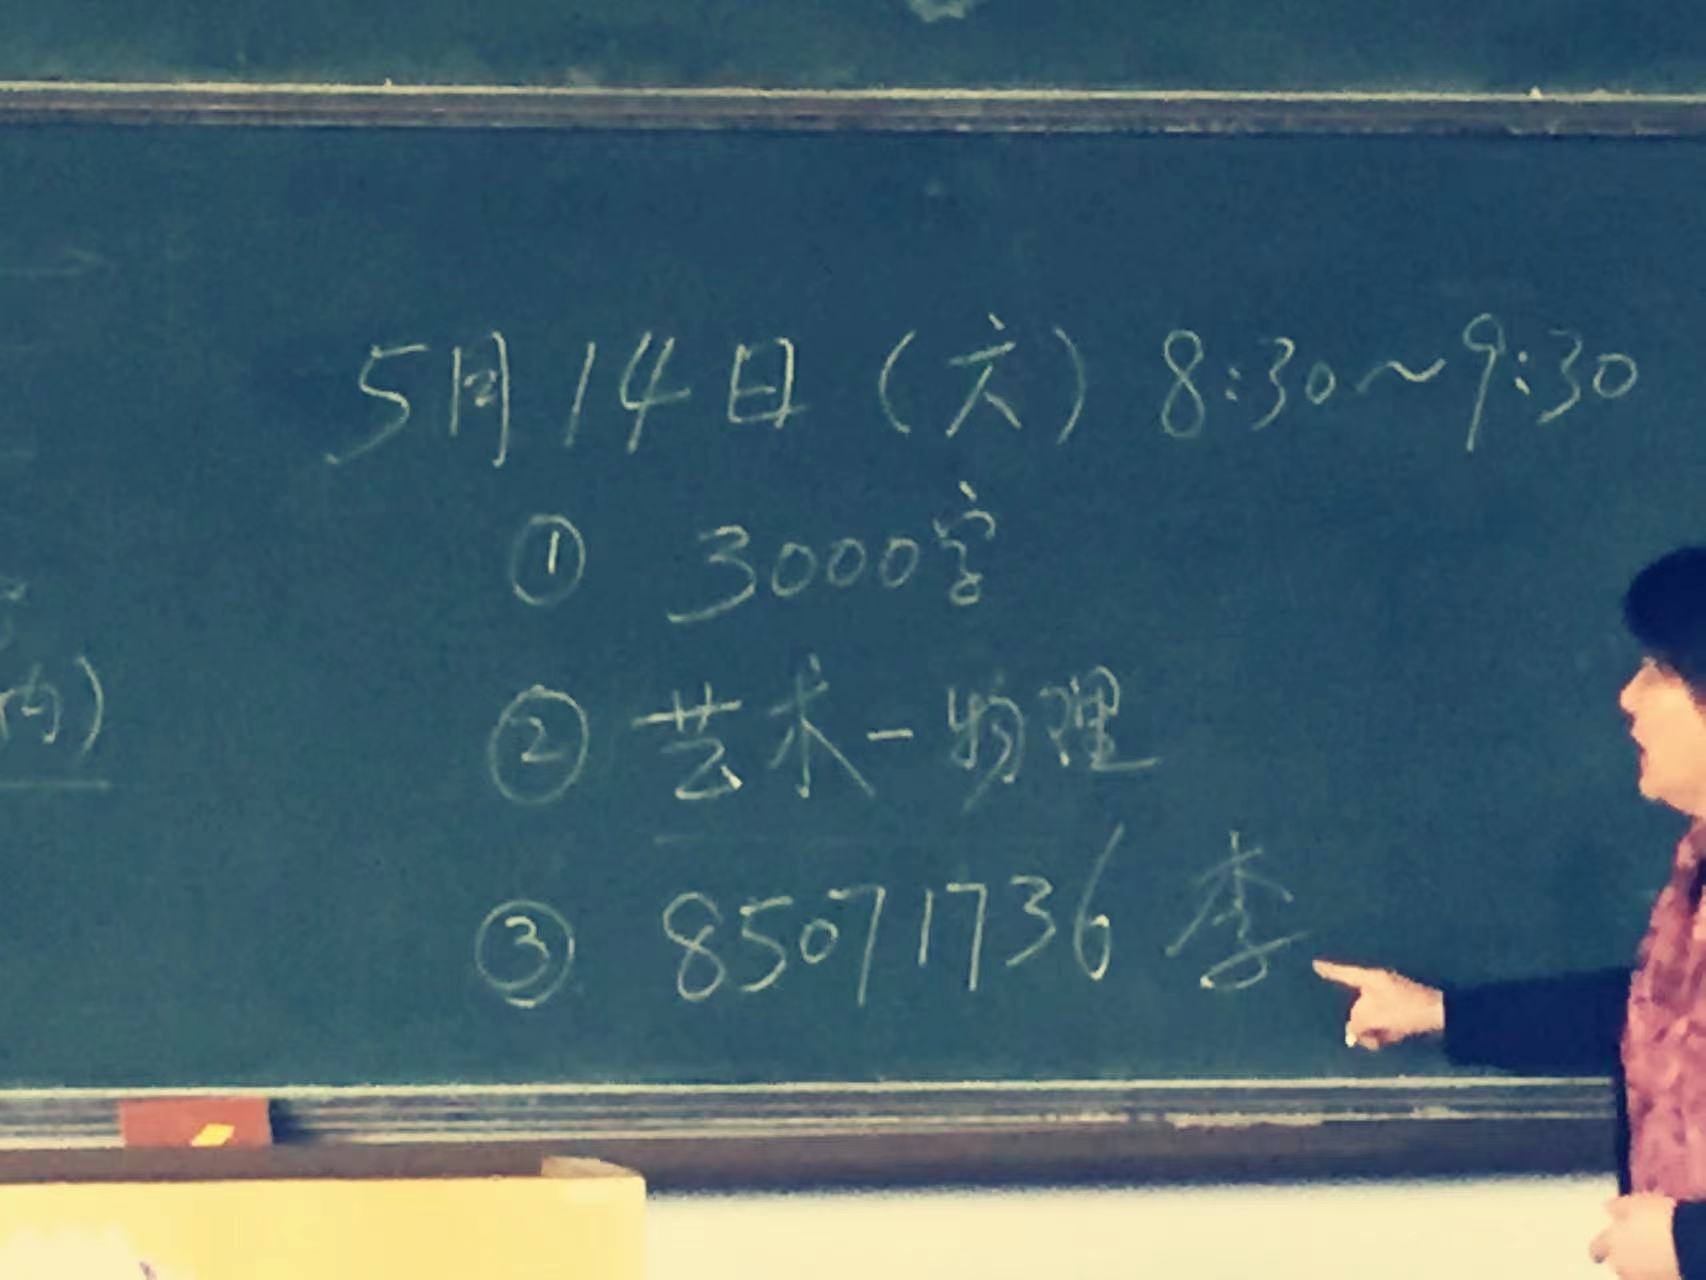 5月14日（六）8:30～9:30
① 3000字
② 艺术-物理
③ 85071736 李
的)